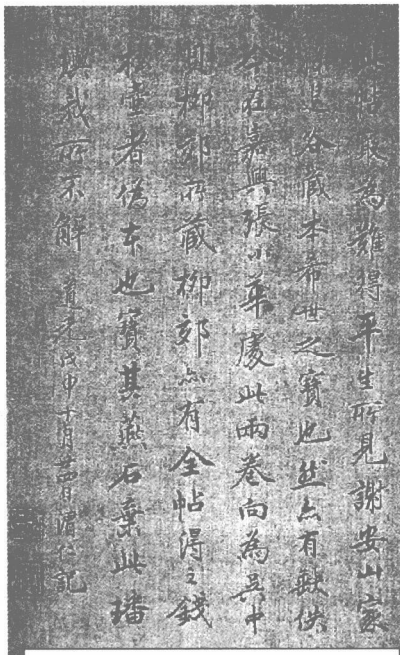 此帖最為難得平生所見謝安山家
是谷藏本希世之寶也然亦有缺佚
今在嘉興張小華處此兩卷向為吳中
柳郊所藏柳郊亦有全帖得之錢
者偽本也寶其燕石棄此璠
我所不解道光戊申十月廿四日湄仁記